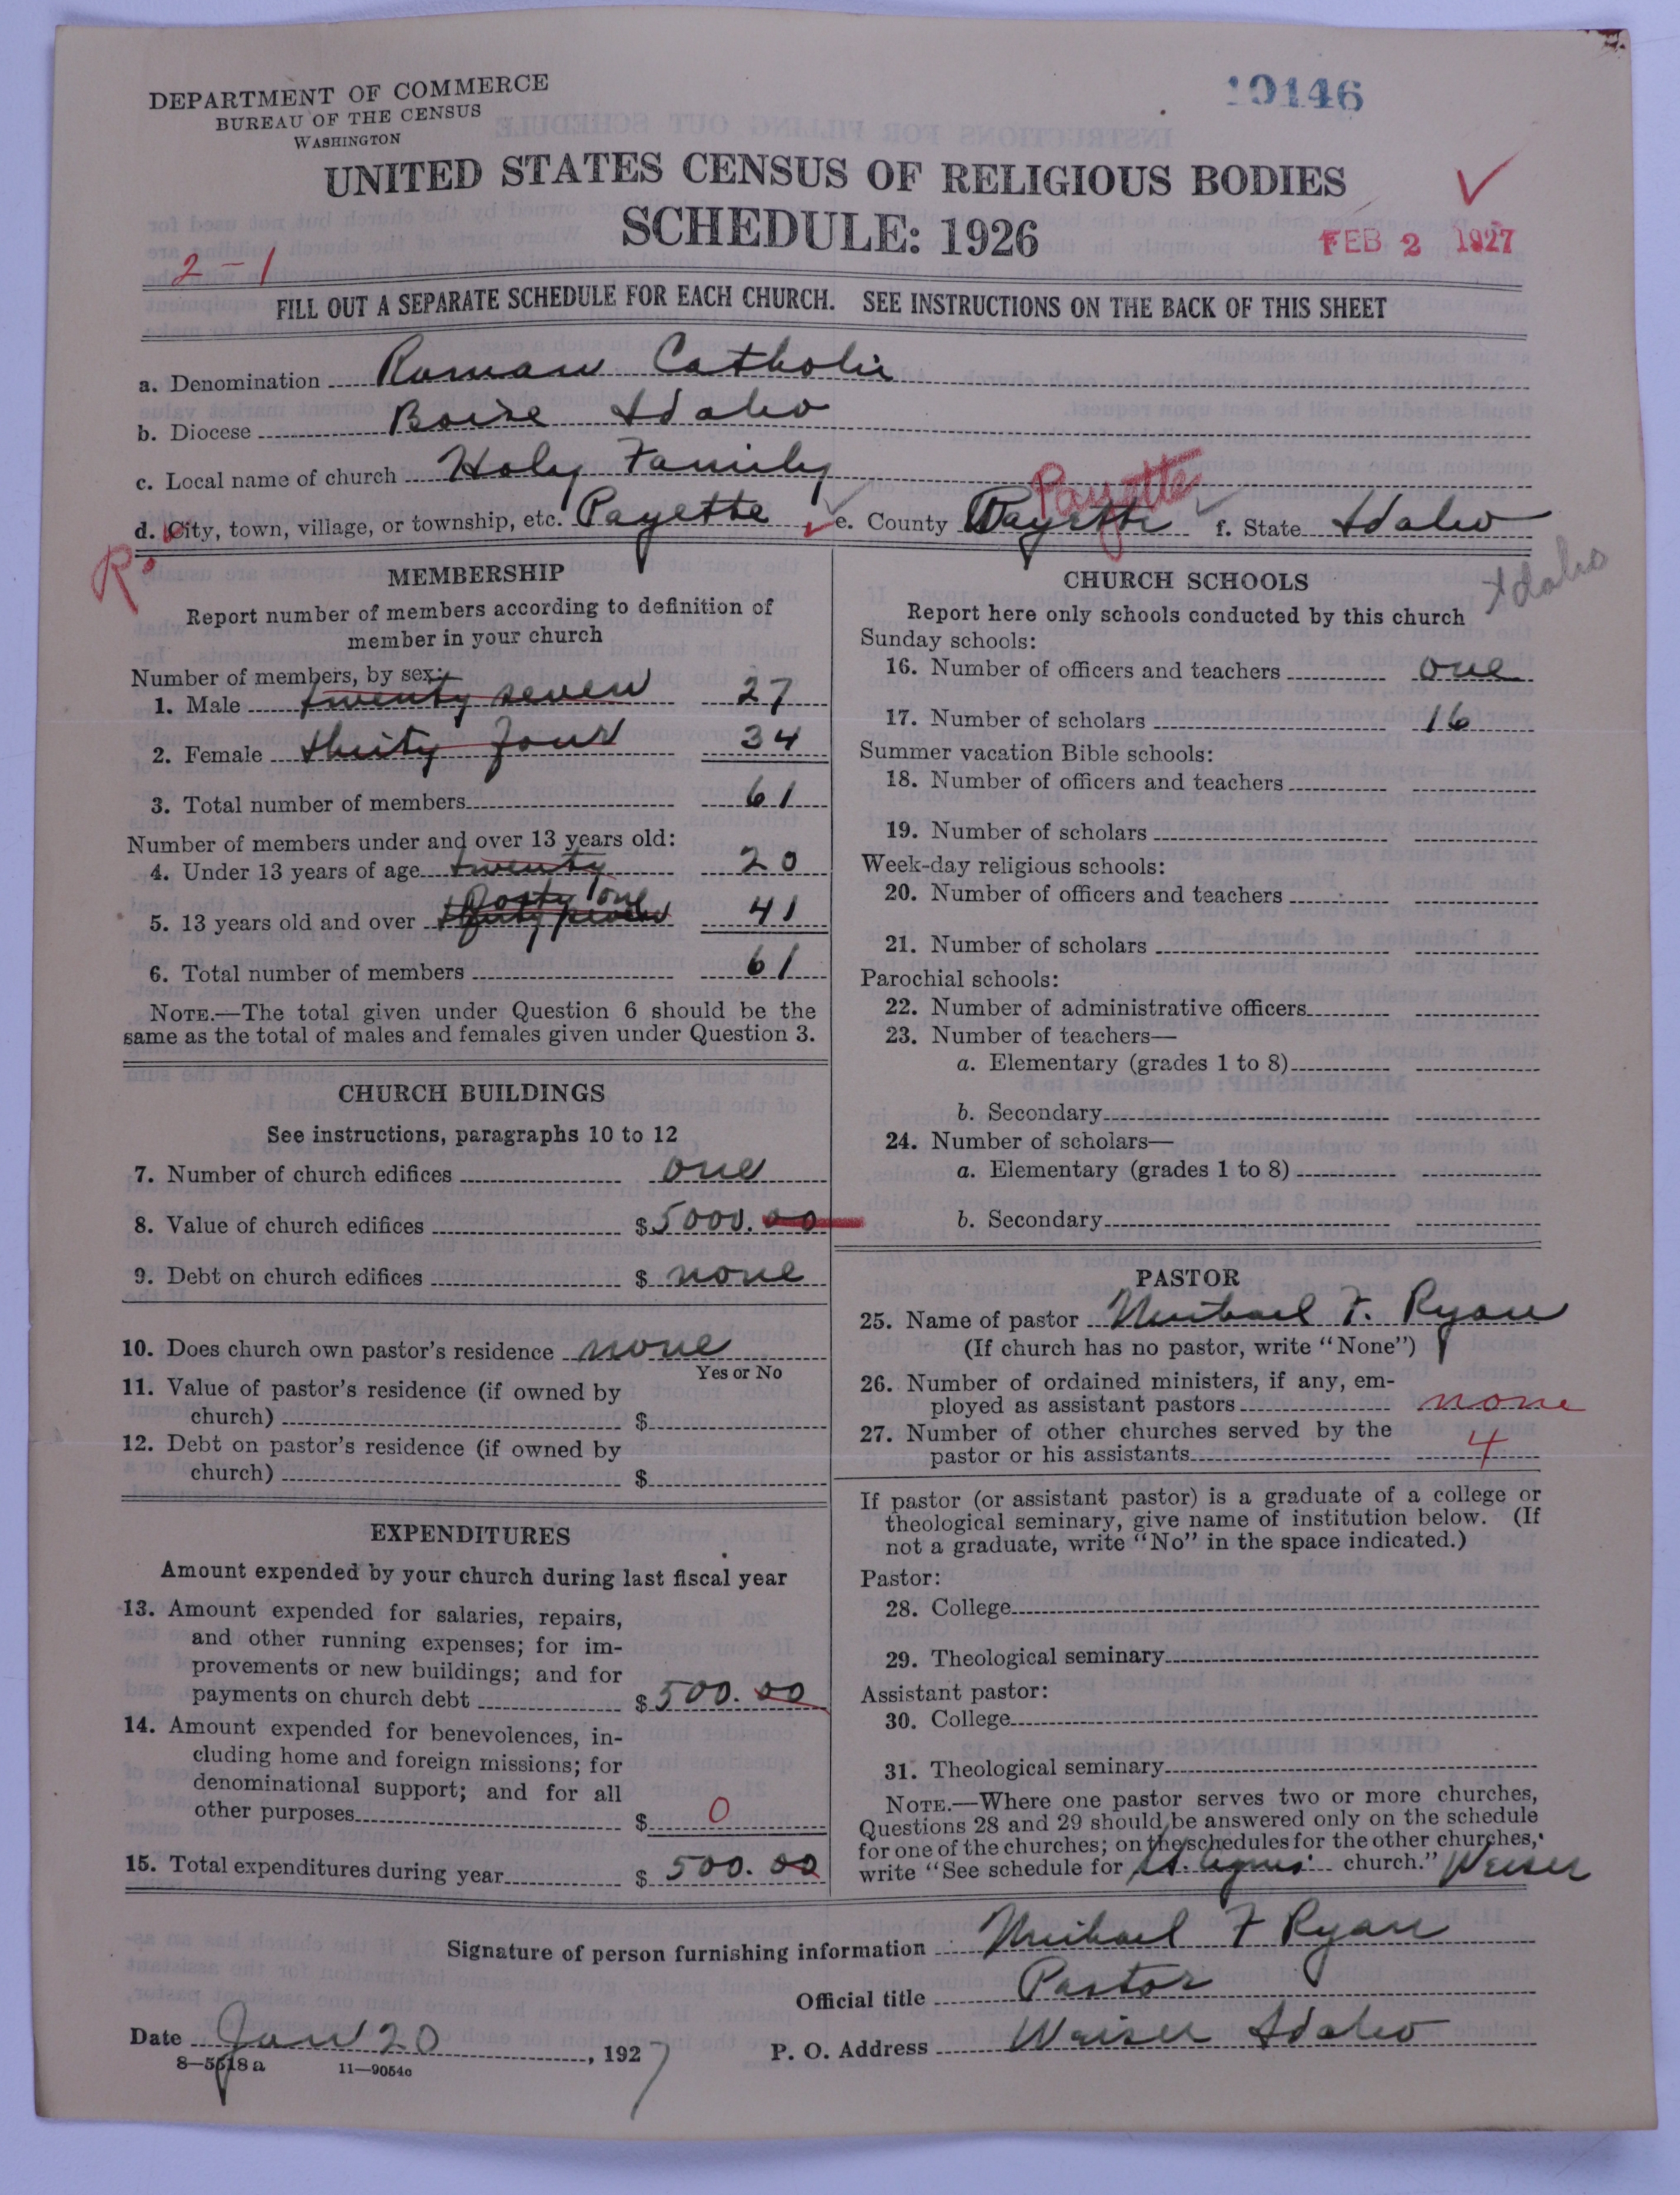 DEPARTMENT OF COMMERCE
BUREAU OF THE CENSUS
WASHINGTON
19146
UNITED STATES CENSUS OF RELIGIOUS BODIES
SCHEDULE: 1926
FEB 2 1927
2-1
FILL OUT A SEPARATE SCHEDULE FOR EACH CHURCH. SEE INSTRUCTIONS ON THE BACK OF THIS SHEET
a. Denomination Roman Catholic
b. Diocese Boise Idaho
c. Local name of church Holy Family
Payette
d. City, town, village, or township, etc. Payette e. County Payette f. State Idaho
R.
Idaho
MEMBERSHIP
Report number of members according to definition of
member in your church
Number of members, by sex:
1. Male twenty seven 27
2. Female thirty four 34
3. Total number of members 61
Number of members under and over 13 years old:
4. Under 13 years of age twenty 20
forty one
5. 13 years old and over thirty seven 41
6. Total number of members 61
NOTE.—The total given under Question 6 should be the
same as the total of males and females given under Question 3.
CHURCH BUILDINGS
See instructions, paragraphs 10 to 12
7. Number of church edifices one
8. Value of church edifices $5000.00
9. Debt on church edifices $ none
10. Does church own pastor's residence none
Yes or No
11. Value of pastor's residence (if owned by
church) $
12. Debt on pastor's residence (if owned by
church) $
EXPENDITURES
Amount expended by your church during last fiscal year
13. Amount expended for salaries, repairs,
and other running expenses; for im-
provements or new buildings; and for
payments on church debt $500.00
14. Amount expended for benevolences, in-
cluding home and foreign missions; for
denominational support; and for all
other purposes $ 0
15. Total expenditures during year $ 500.00
CHURCH SCHOOLS
Report here only schools conducted by this church
Sunday schools:
16. Number of officers and teachers one
17. Number of scholars 16
Summer vacation Bible schools:
18. Number of officers and teachers
19. Number of scholars
Week-day religious schools:
20. Number of officers and teachers
21. Number of scholars
Parochial schools:
22. Number of administrative officers
23. Number of teachers—
a. Elementary (grades 1 to 8)
b. Secondary
24. Number of scholars—
a. Elementary (grades 1 to 8)
b. Secondary
PASTOR
25. Name of pastor Michael F. Ryan
(If church has no pastor, write "None")
26. Number of ordained ministers, if any, em-
ployed as assistant pastors none
27. Number of other churches served by the
pastor or his assistants 4
If pastor (or assistant pastor) is a graduate of a college or
theological seminary, give name of institution below. (If
not a graduate, write "No" in the space indicated.)
Pastor:
28. College
29. Theological seminary
Assistant pastor:
30. College
31. Theological seminary
NOTE.—Where one pastor serves two or more churches,
Questions 28 and 29 should be answered only on the schedule
for one of the churches; on the schedules for the other churches,
write "See schedule for St. Agnes' church." Weiser
Signature of person furnishing information Michael F Ryan
Official title Pastor
Date Jan 20, 1927 P. O. Address Weiser Idaho
8—5518a 11—9054c